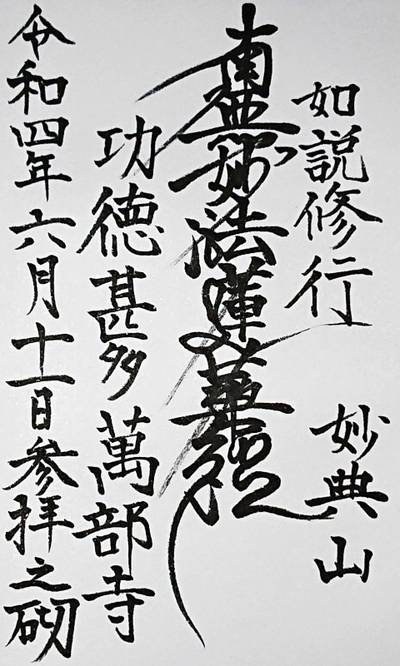 如説修行　妙典山
南無妙法蓮華経
功徳甚多　萬部寺
令和四年六月十一日参拝之砌